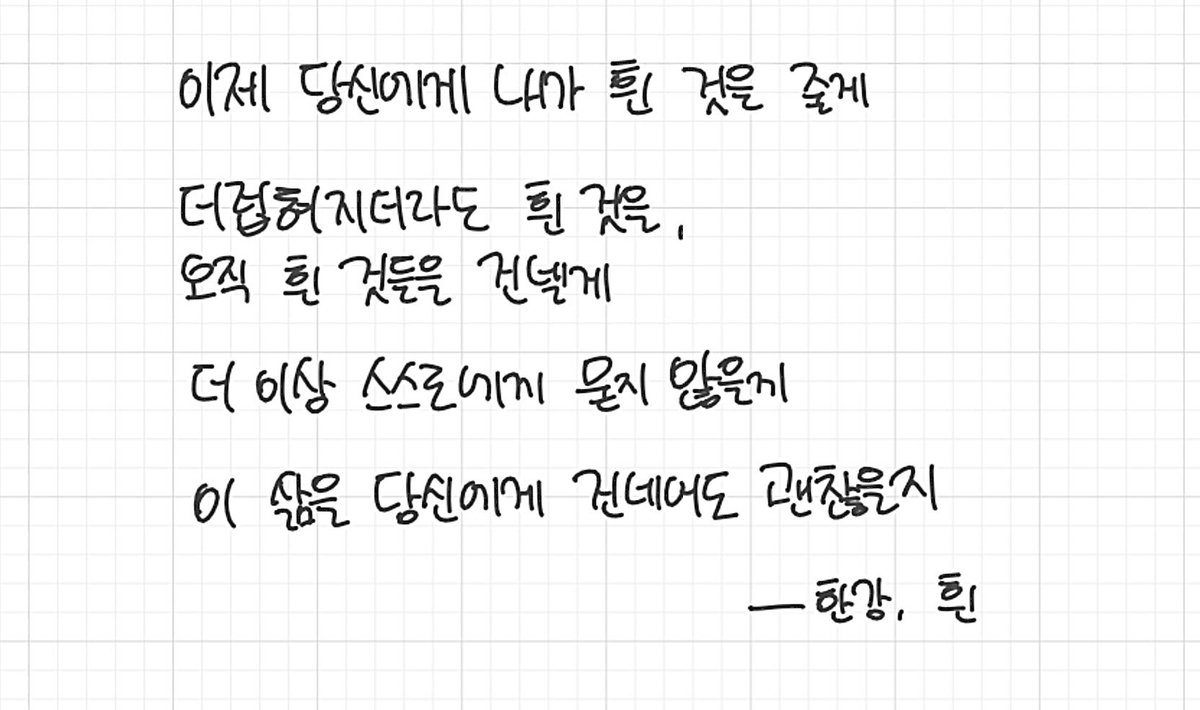 이제 당신에게 내가 흰 것을 줄게
더럽혀지더라도 흰 것을,
오직 흰 것들을 건넬게
더 이상 스스로에게 묻지 않을게
이 삶을 당신에게 건네어도 괜찮을지
— 한강, 흰